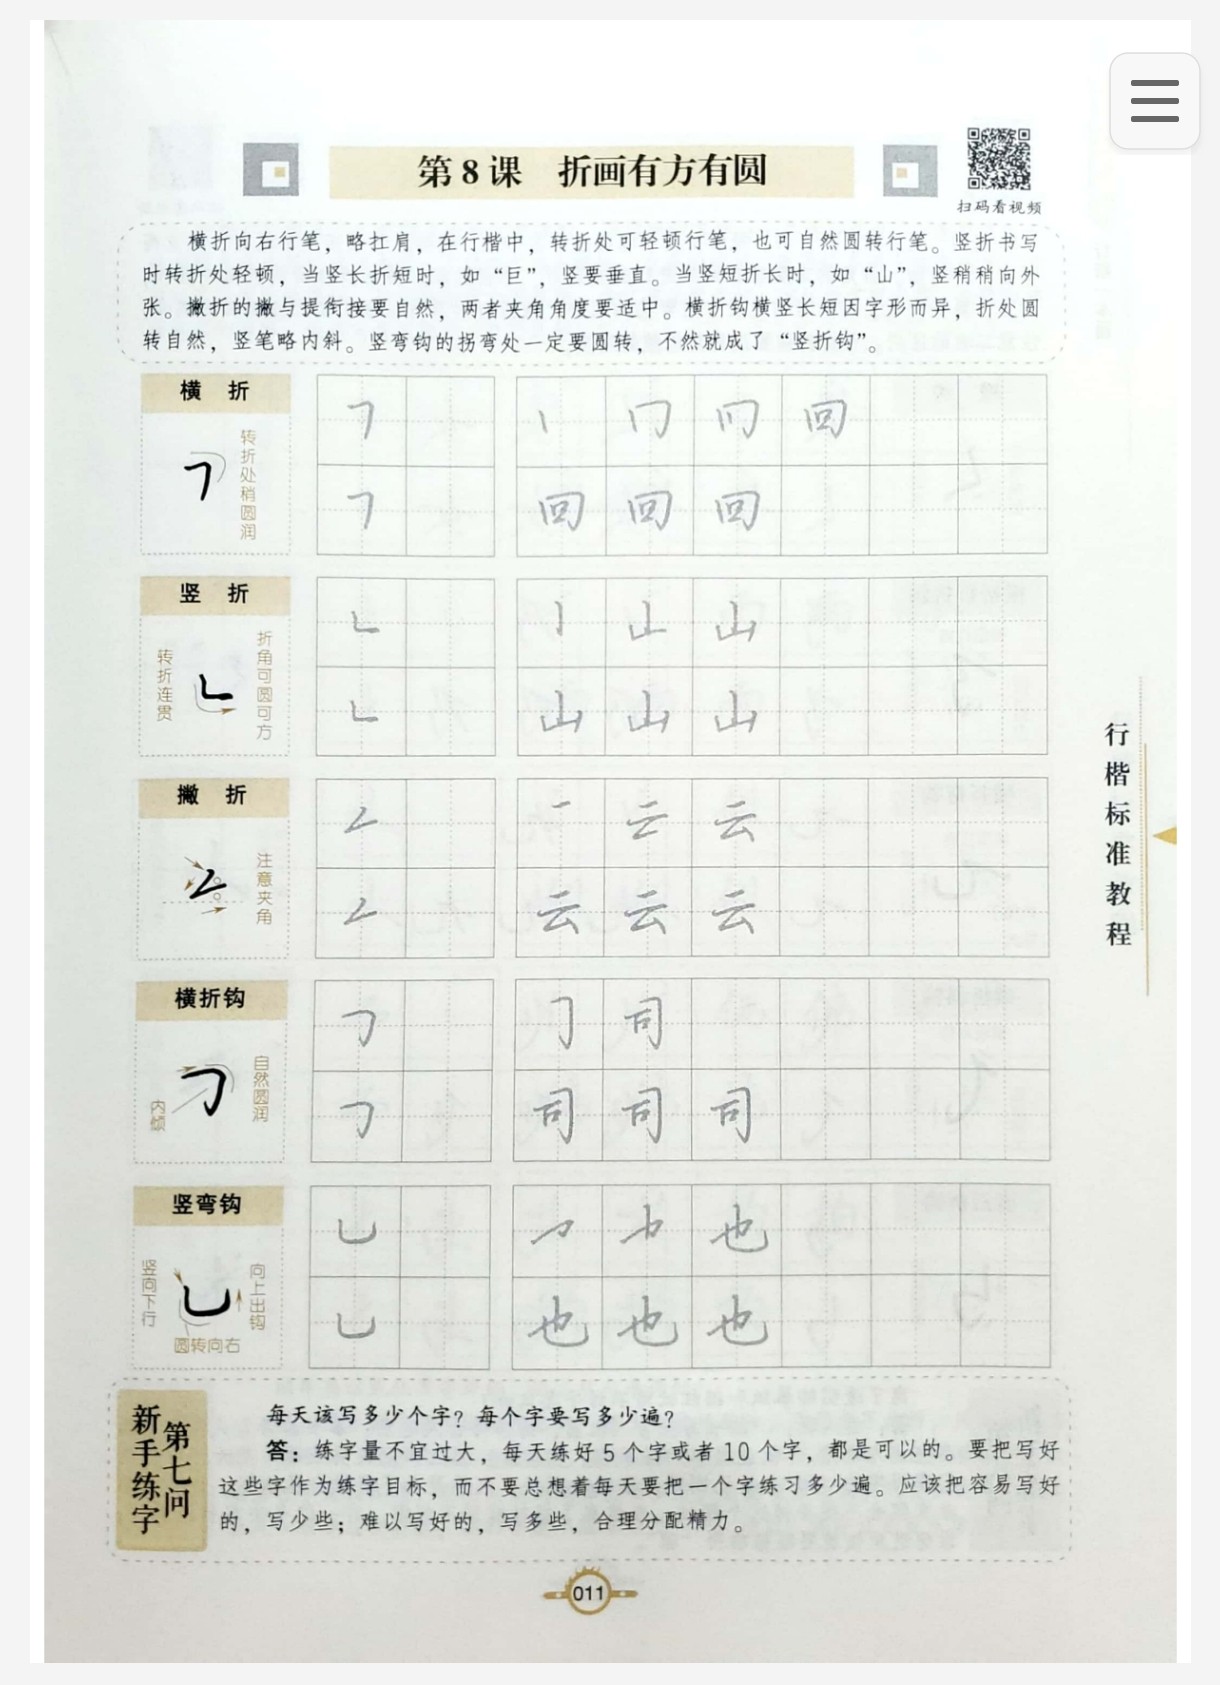 第8课 折画有方有圆
扫码看视频
横折向右行笔，略扛肩，在行楷中，转折处可轻顿行笔，也可自然圆转行笔。竖折书写
时转折处轻顿，当竖长折短时，如“巨”，竖要垂直。当竖短折长时，如“山”，竖稍稍向外
张。撇折的撇与提衔接要自然，两者夹角角度要适中。横折钩横竖长短因字形而异，折处圆
转自然，竖笔略内斜。竖弯钩的拐弯处一定要圆转，不然就成了“竖折钩”。
横 折
转折处稍圆润
㇕ 丨 冂 回
㇕ 回 回 回
竖 折
转折连贯
折角可圆可方
𠃊 丨 山
𠃊 山 山 山
撇 折
注意夹角
𠃋 一 云 云
𠃋 云 云 云
横折钩
内倾
自然圆润
𠃌 𠃌 司
𠃌 司 司 司
竖弯钩
竖向下行
向上出钩
圆转向右
乚 也
乚 也 也 也
行楷标准教程
新手练字
第七问
每天该写多少个字？每个字要写多少遍？
答：练字量不宜过大，每天练好5个字或者10个字，都是可以的。要把写好
这些字作为练字目标，而不要总想着每天要把一个字练习多少遍。应该把容易写好
的，写少些；难以写好的，写多些，合理分配精力。
011